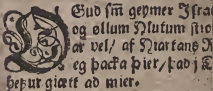 Gud sm̄ geymer Jsra
og øllum Hlutum stio
ar vel/ af Hiartans R
eg þacka þier/ þad j L
hefur giætt ad mier.